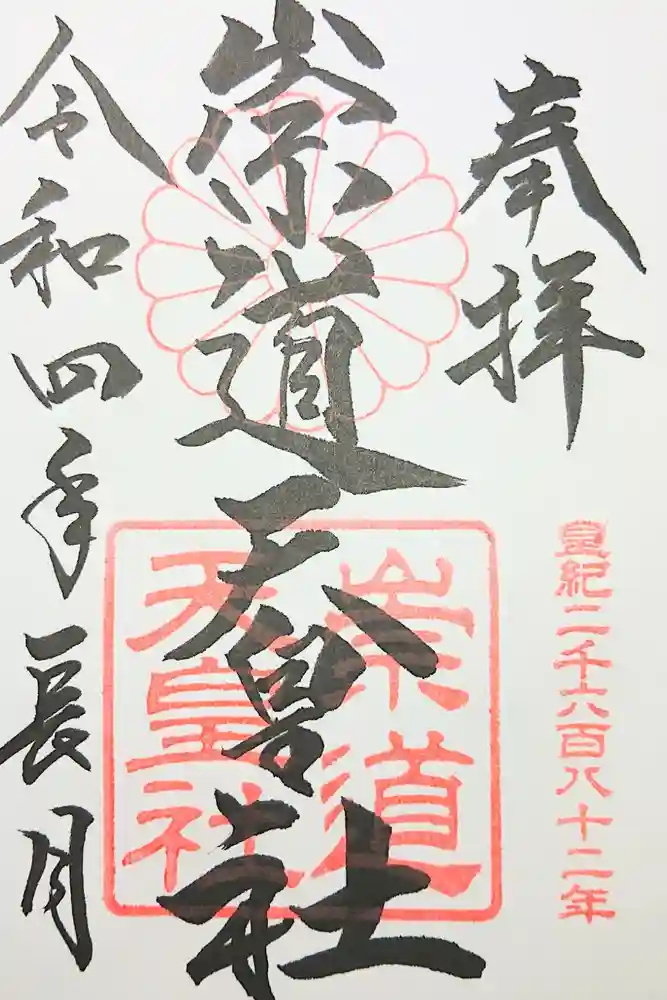 奉拝
皇紀二千六百八十二年
崇道天皇社
崇道
天皇社
令和四年長月